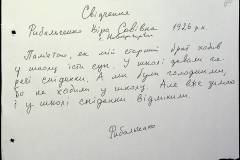 Свідчення
Рибальченко Віра Савівна 1926 р.н.
с.
Пам'ятаю, як мій старший брат ходив
у школу їсти суп. У школі давали га-
рячі сніданки. А ми були голодними,
бо не ходили у школу. Але вже зимою
і у школі сніданки відмінили.
Рибальченко